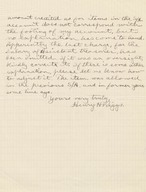 amount credited us for items on the
account does not correspond with
the footing of my account, but
no explanation has come to hand.
Apparently the last charge, for the
salary of Resident Director, has
been omitted. If it was an oversight
kindly correct it; if there is some
explanation, please let me know how
to adjust it. The item was allowed
in the previous 1/4s, and in former years
Yours very truly,
Henry